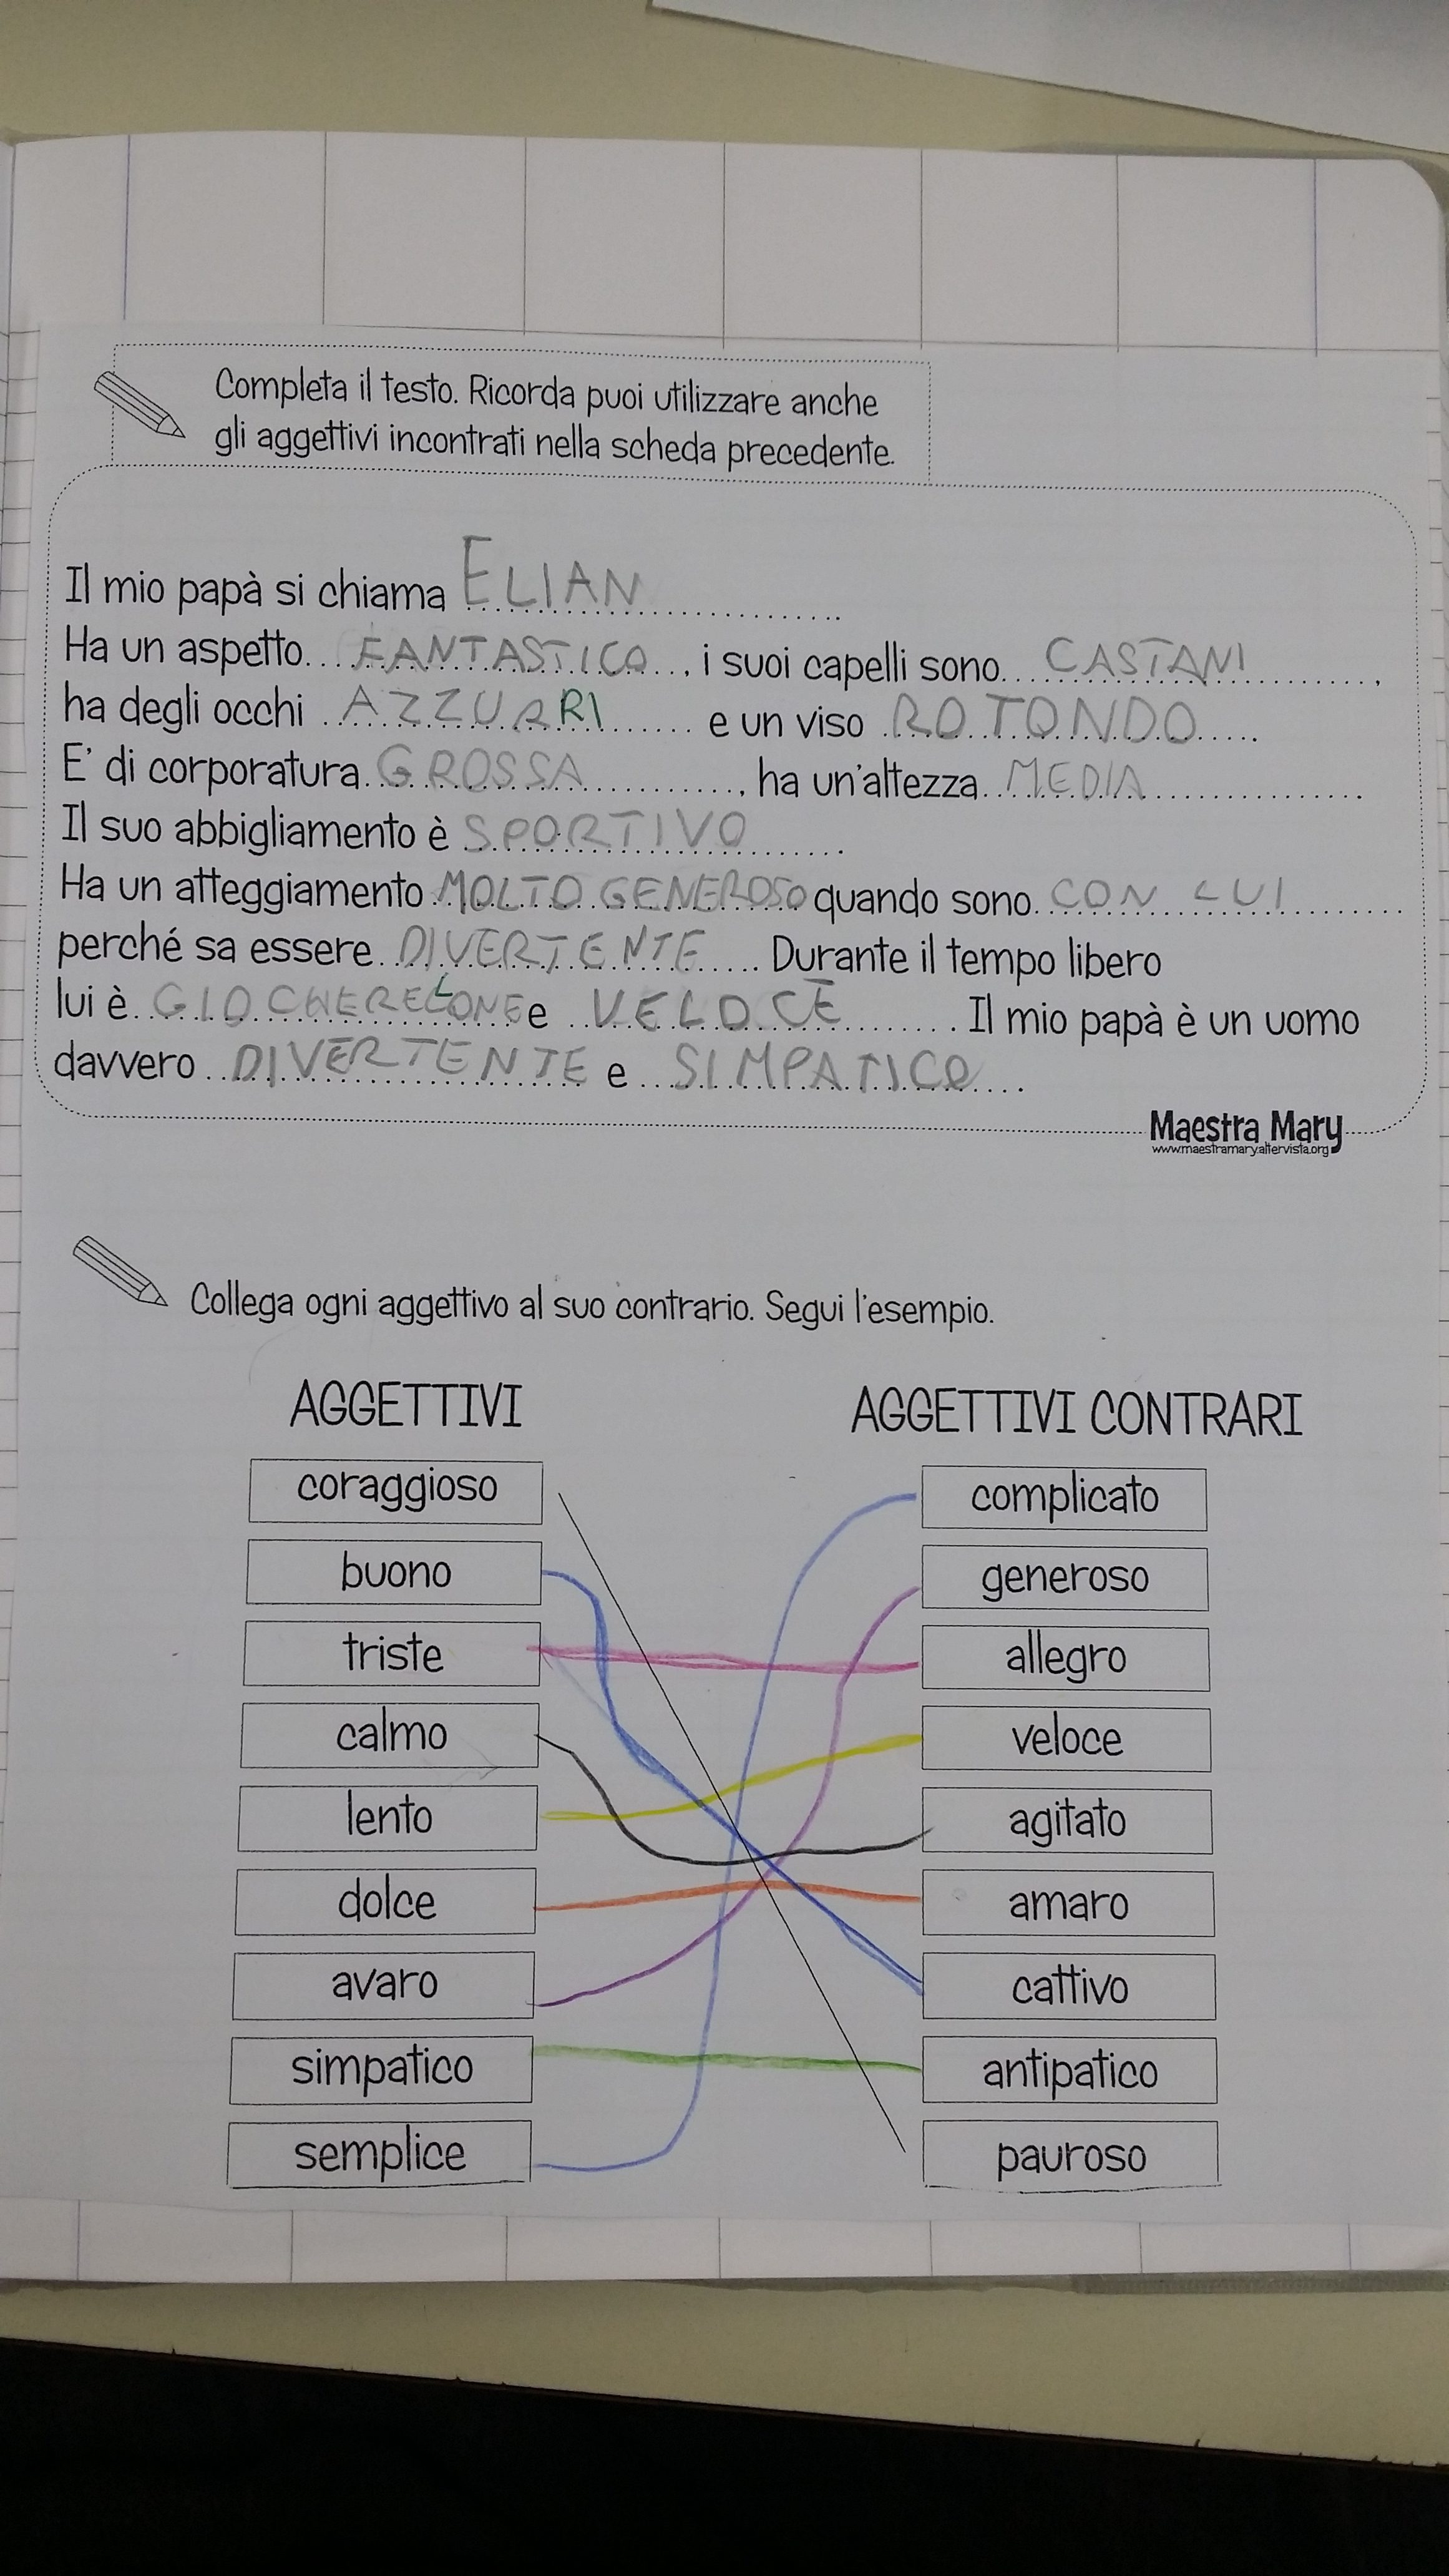 Completa il testo. Ricorda puoi utilizzare anche
gli aggettivi incontrati nella scheda precedente.
Il mio papà si chiama ELIAN
Ha un aspetto FANTASTICO, i suoi capelli sono CASTANI,
ha degli occhi AZZURRI e un viso ROTONDO
E' di corporatura GROSSA, ha un'altezza MEDIA
Il suo abbigliamento è SPORTIVO
Ha un atteggiamento MOLTO GENEROSO quando sono CON LUI
perché sa essere DIVERTENTE. Durante il tempo libero
lui è GIOCHERELLONE e VELOCE. Il mio papà è un uomo
davvero DIVERTENTE e SIMPATICO
Maestra Mary
www.maestramary.altervista.org
Collega ogni aggettivo al suo contrario. Segui l'esempio.
AGGETTIVI AGGETTIVI CONTRARI
coraggioso complicato
buono generoso
triste allegro
calmo veloce
lento agitato
dolce amaro
avaro cattivo
simpatico antipatico
semplice pauroso